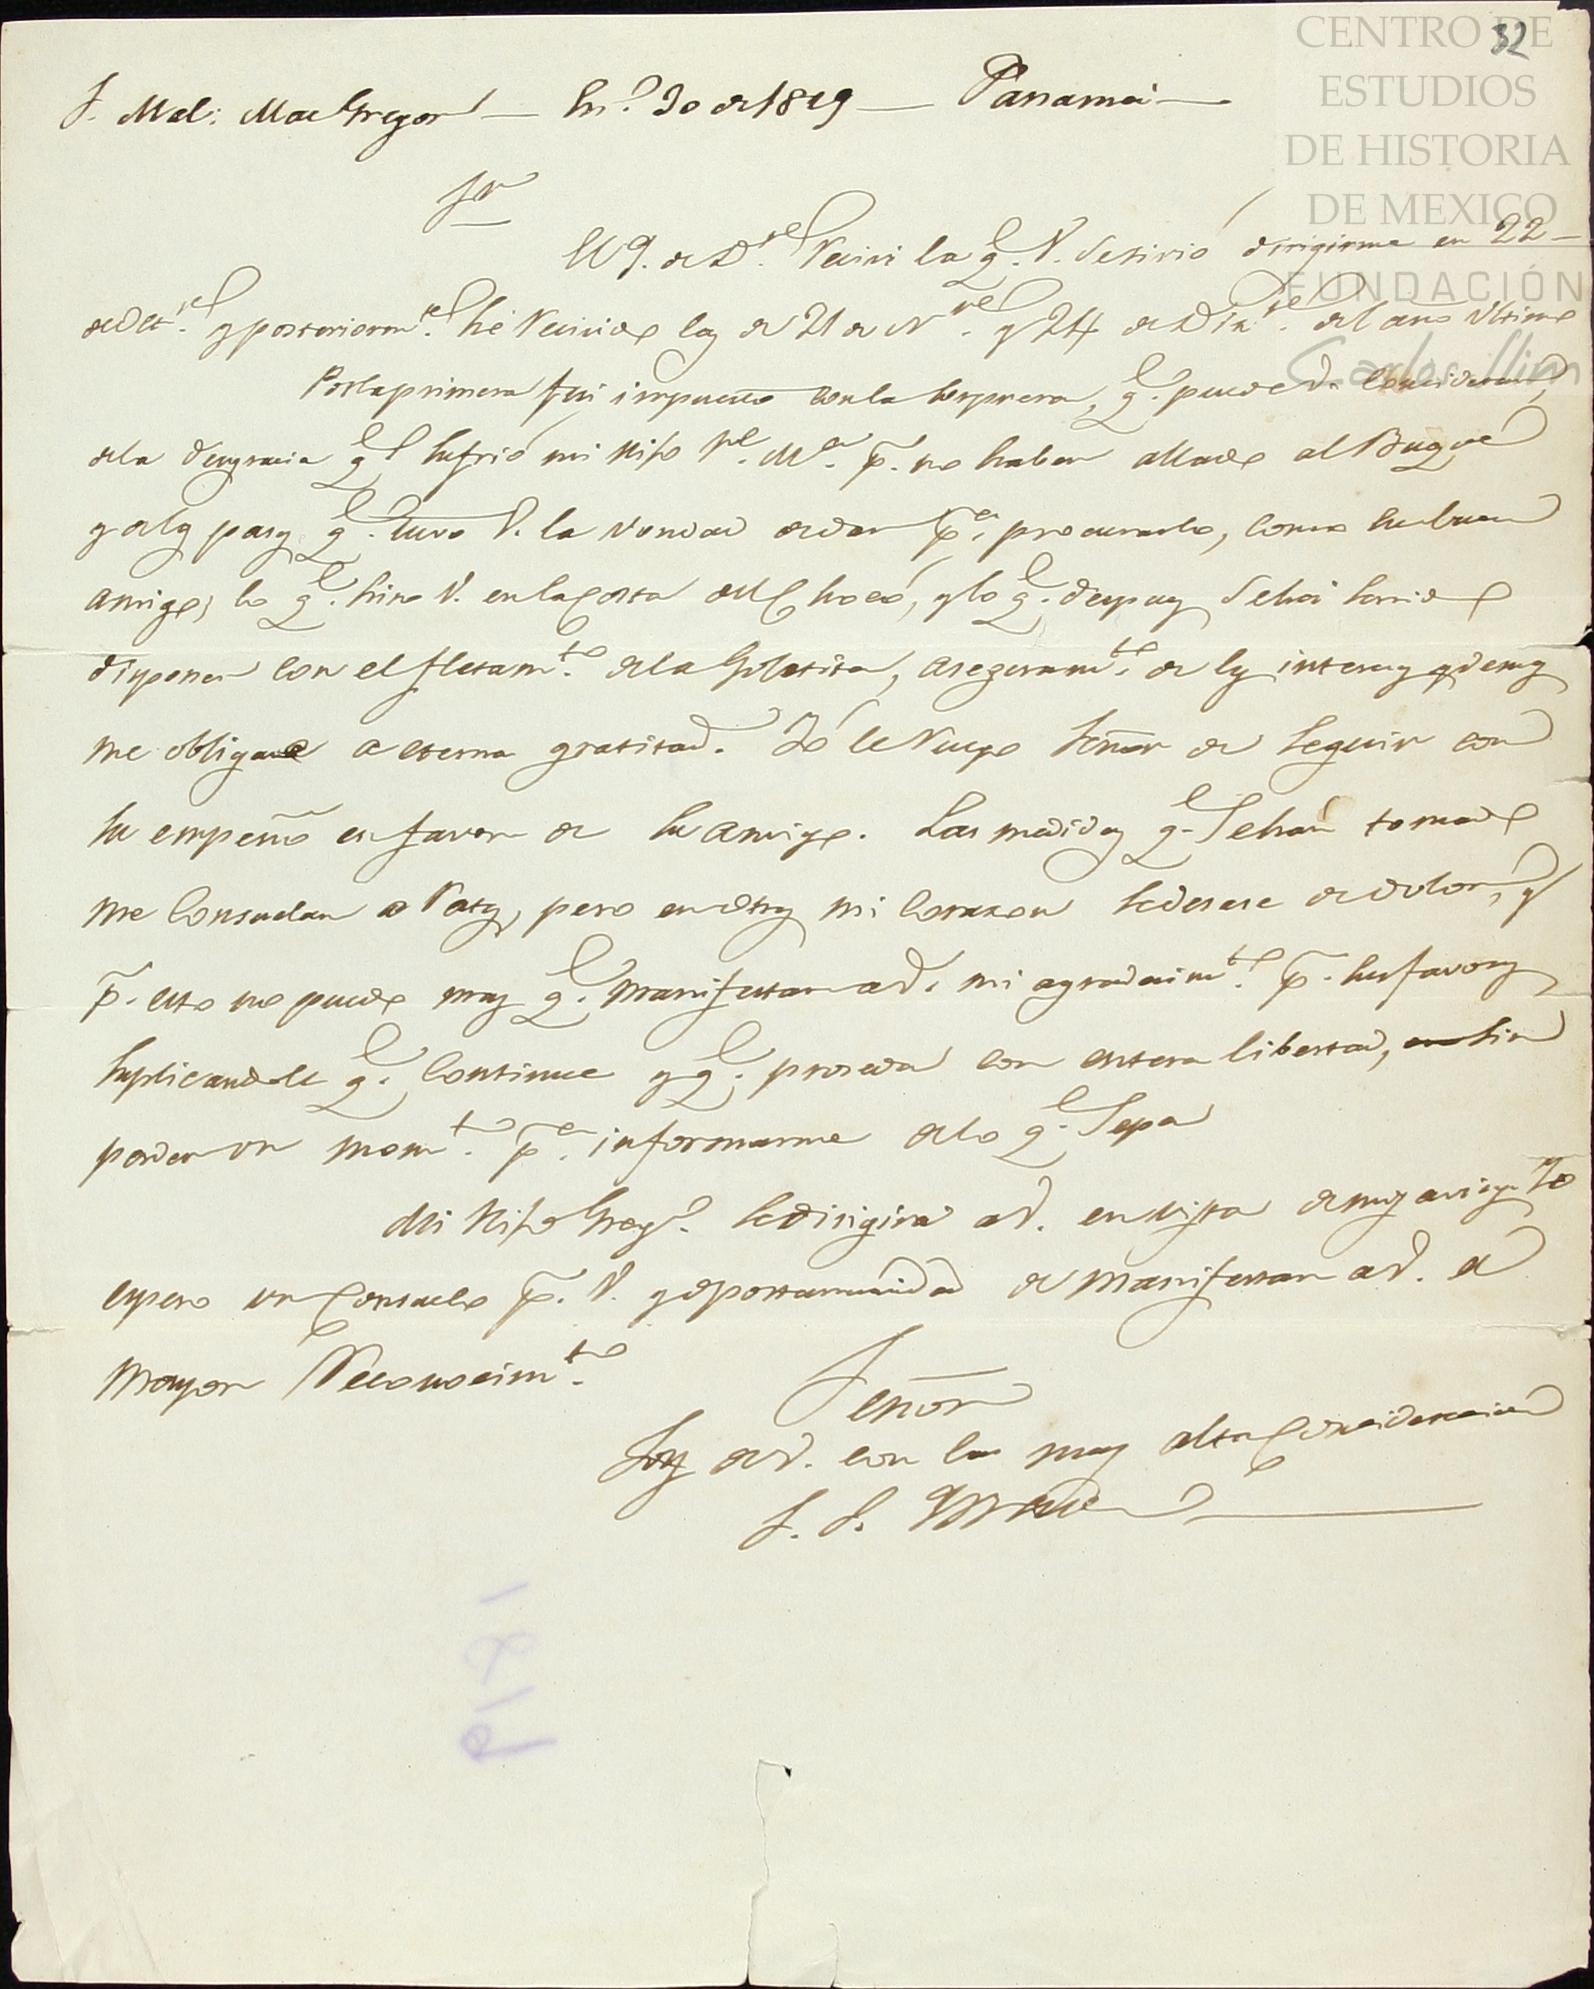 32
CENTRO DE
ESTUDIOS
DE HISTORIA
DE MEXICO
FUNDACIÓN
Carlos Slim
S. Mal: MacGregor — En.º 30 de 1829 — Panamá —
Sr
El 9. de D.re Reciví la q.e V. se sirvió dirigirme en 22 —
de Oct.re y posteriorm.te hé recivido las de 21 de N.re y 24 de Dix.re del año último
Por la primera fui impuesto con la sorpresa, q.e puede V. considerar,
de la desgracia q.e sufrió mi hijo M.a p.r no haber allado al Buque
y de los pasos q.e tuvo V. la vondad de dar p.a procurarlo, como su buen
amigo, lo q.e hizo V. en la Costa del Chocó, y lo q.e despues se ha servido
disponer con el fletam.to de la Goletita, aseguram.to de los intereses y demas
me obligan a eterna gratitud. Yó le ruego Señor de seguir con
su empeño en favor de su amigo. Las medidas q.e se han tomado
me consuelan a ratos, pero en otros mi corazon de dolor, y
p.r esto no puedo mas q.e manifestar a V. mi agradecim.to p.r sus favores
suplicandole q.e continue y q.e proceda con entera libertad, sin
perder un mom.to p.a informarme de lo q.e sepa
Mi hijo Greg.o se dirigirá a V. en vista de mis avisos Yo
espero un consuelo p.r V. y oportunidad de manifestar a V. el
mayor Reconocim.to
Señor
Soy de V. con la mas alta Concideracion
S. S.
1819